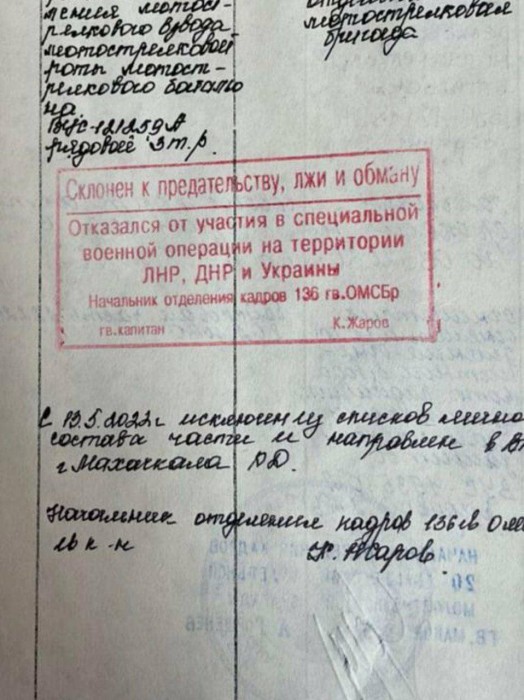 ления мотост-
релкового взвода
мотострелковой
роты мотост-
релкового батальо
на.
ВУС-121259А
рядовой 3 т.р.
мотострелковая
бригада
Склонен к предательству, лжи и обману
Отказался от участия в специальной
военной операции на территории
ЛНР, ДНР и Украины
Начальник отделения кадров 136 гв.ОМСБр
гв.капитан К.Жаров
С 13.5.2022г исключен из списков лично
состава части и направлен в В
г Махачкала РД.
Начальник отделения кадров 136гв Омс
гв к-н К. Жаров